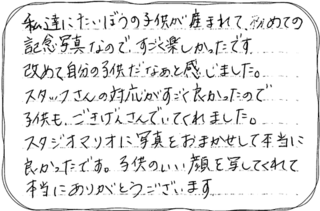 私達にたいぼうの子供が産まれて、初めての
記念写真なので、すごく楽しかったです
改めて自分の子供だなぁと感じました。
スタッフさんの対応がすごく良かったので
子供も、ごきげんさんでいてくれました。
スタジオマリオに写真をおまかせして本当に
良かったです。子供のいい顔を写してくれて
本当にありがとうございます